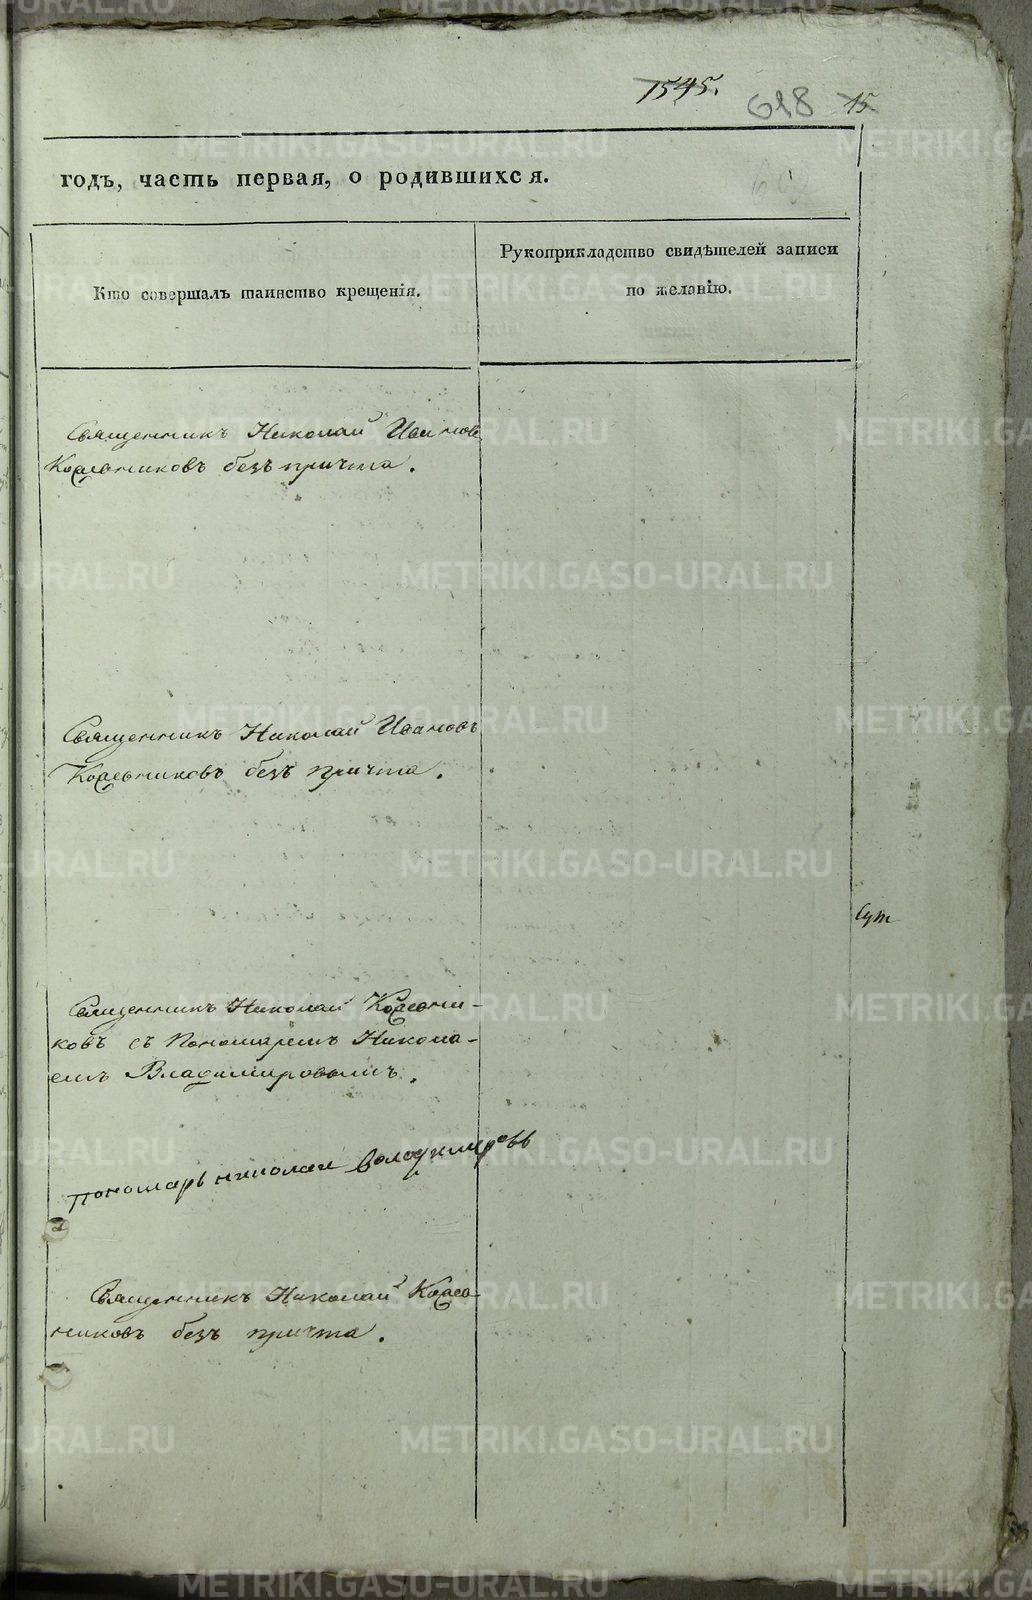 1545.
618 15.
годъ, часть первая, о родившихся.
Кто совершалъ таинство крещенія.
Рукоприкладство свидѣтелей записи
по желанію.
Священникъ Николай Ивановъ
безъ причта.
Священникъ Николай Ивановъ
безъ причта.
Священникъ Николай
ковъ съ Пономаремъ Никола-
емъ Владимировымъ.
пономарь николаи володимировъ
Священникъ Николай
никовъ безъ причта.
METRIKI.GASO-URAL.RU